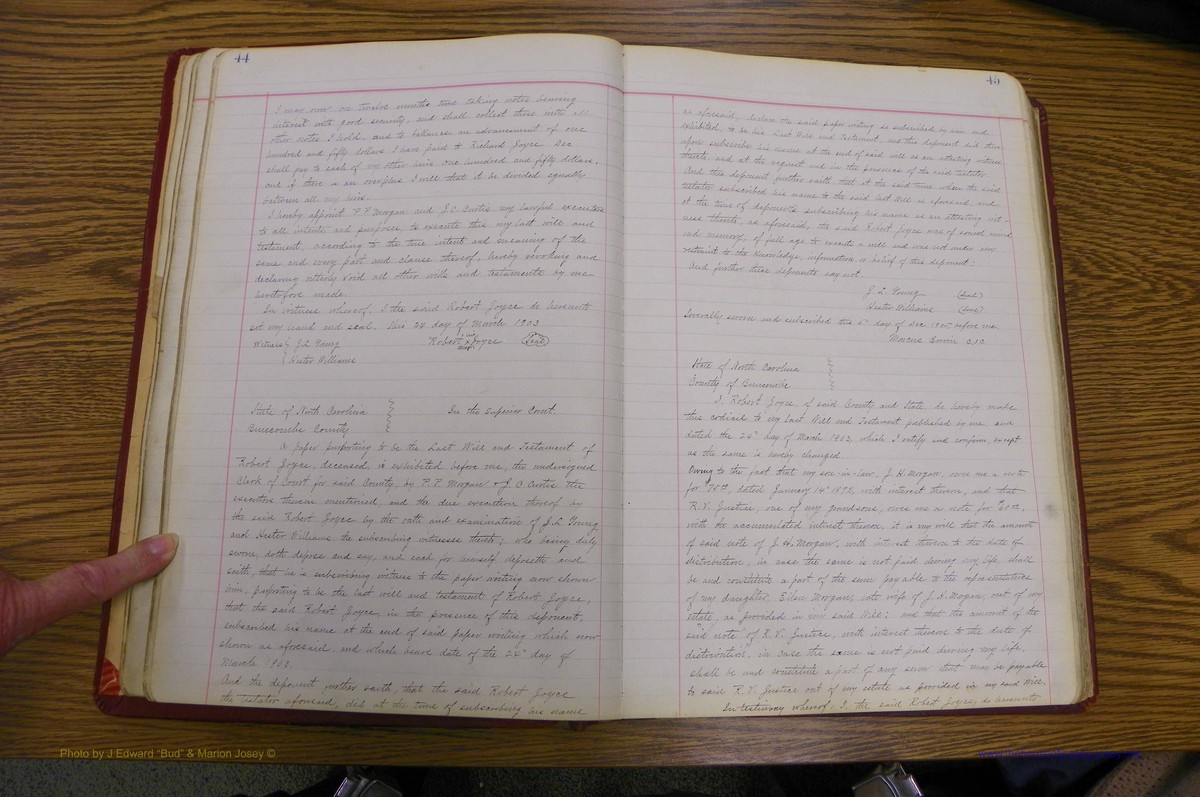 44
I may own on twelve months time taking notes bearing
interest with good security, and shall collect these with all
other notes I hold, and to balance an advancement of one
hundred and fifty dollars I have paid to Richard Joyce Dec
shall pay to each of my other heirs one hundred and fifty dollars,
and if there is an overplus I will that it be divided equally
between all my heirs.
I hereby appoint P.P. Morgan and J.C. Curtis my lawful executors
to all intents and purposes, to execute this my last will and
testament, according to the true intent and meaning of the
same and every part and clause thereof, hereby revoking and
declaring utterly void all other wills and testaments by me
heretofore made.
In witness whereof, I the said Robert Joyce do hereunto
set my hand and seal, this 24 day of March 1903
Witness J.L. Young Robert x Joyce (Seal)
Hester Williams
State of North Carolina In the Superior Court.
Buncombe County
A paper purporting to be the Last Will and Testament of
Robert Joyce, deceased, is exhibited before me, the undersigned
Clerk of Court for said County, by P.P. Morgan & J.C. Curtis the
executors therein mentioned, and the due execution thereof by
the said Robert Joyce by the oath and examination of J.L. Young
and Hester Williams the subscribing witnesses thereto; who being duly
sworn, doth depose and say, and each for himself deposeth and
saith, that he is subscribing witness to the paper writing now shown
him, purporting to be the last will and testament of Robert Joyce,
that the said Robert Joyce, in the presence of this deponent,
subscribed his name at the end of said paper writing which now
shown as aforesaid, and which bears date of the day of
March 1903.
And the deponent further saith, that the said Robert Joyce
the testator aforesaid, did at the time of subscribing his name
45
as aforesaid, declare the said paper writing so subscribed by him and
exhibited, to be his Last Will and Testament, and this deponent did there
upon subscribe his name at the end of said will as an attesting witness
thereto, and at the request and in the presence of the said testator.
And this deponent further saith that at the said time when the said
testator subscribed his name to the said last will as aforesaid, and
at the time of deponents subscribing his name as an attesting wit-
ness thereto, as aforesaid, the said Robert Joyce was of sound mind
and memory, of full age to execute a will and was not under any
restraint to the knowledge, information or belief of this deponent.
And further these deponents say not.
J.L. Young (Seal)
Hester Williams (Seal)
Severally sworn and subscribed this 5th day of Dec 1905 before me.
Marcus Erwin C.S.C.
State of North Carolina
County of Buncombe
I, Robert Joyce of said County and State, do hereby make
this codicil to my Last Will and Testament published by me and
dated the 24th day of March 1903, which I ratify and confirm, except
as the same is hereby changed.
Owing to the fact that my son-in-law, J.H. Morgan, owes me a note
for dated January 14th with interest thereon, and that
R.V. Justice, one of my grandsons, owes me a note for
with the accumulated interest thereon, it is my will that the amount
of said note of J.H. Morgan, with interest thereon to the date of
distribution, in case the same is not paid during my life, shall
be and constitute a part of the sum payable to the representatives
of my daughter, Ellen Morgan, late wife of J.H. Morgan, out of my
estate, as provided in my said Will; and that the amount of the
said note of R.V. Justice, with interest thereon to the date of
distribution, in case the same is not paid during my life,
shall be and constitute a part of any sum that may be payable
to said R.V. Justice out of my estate as provided in my said Will.
In testimony whereof, I, the said Robert Joyce, do hereunto
Photo by J Edward "Bud" & Marion Josey ©